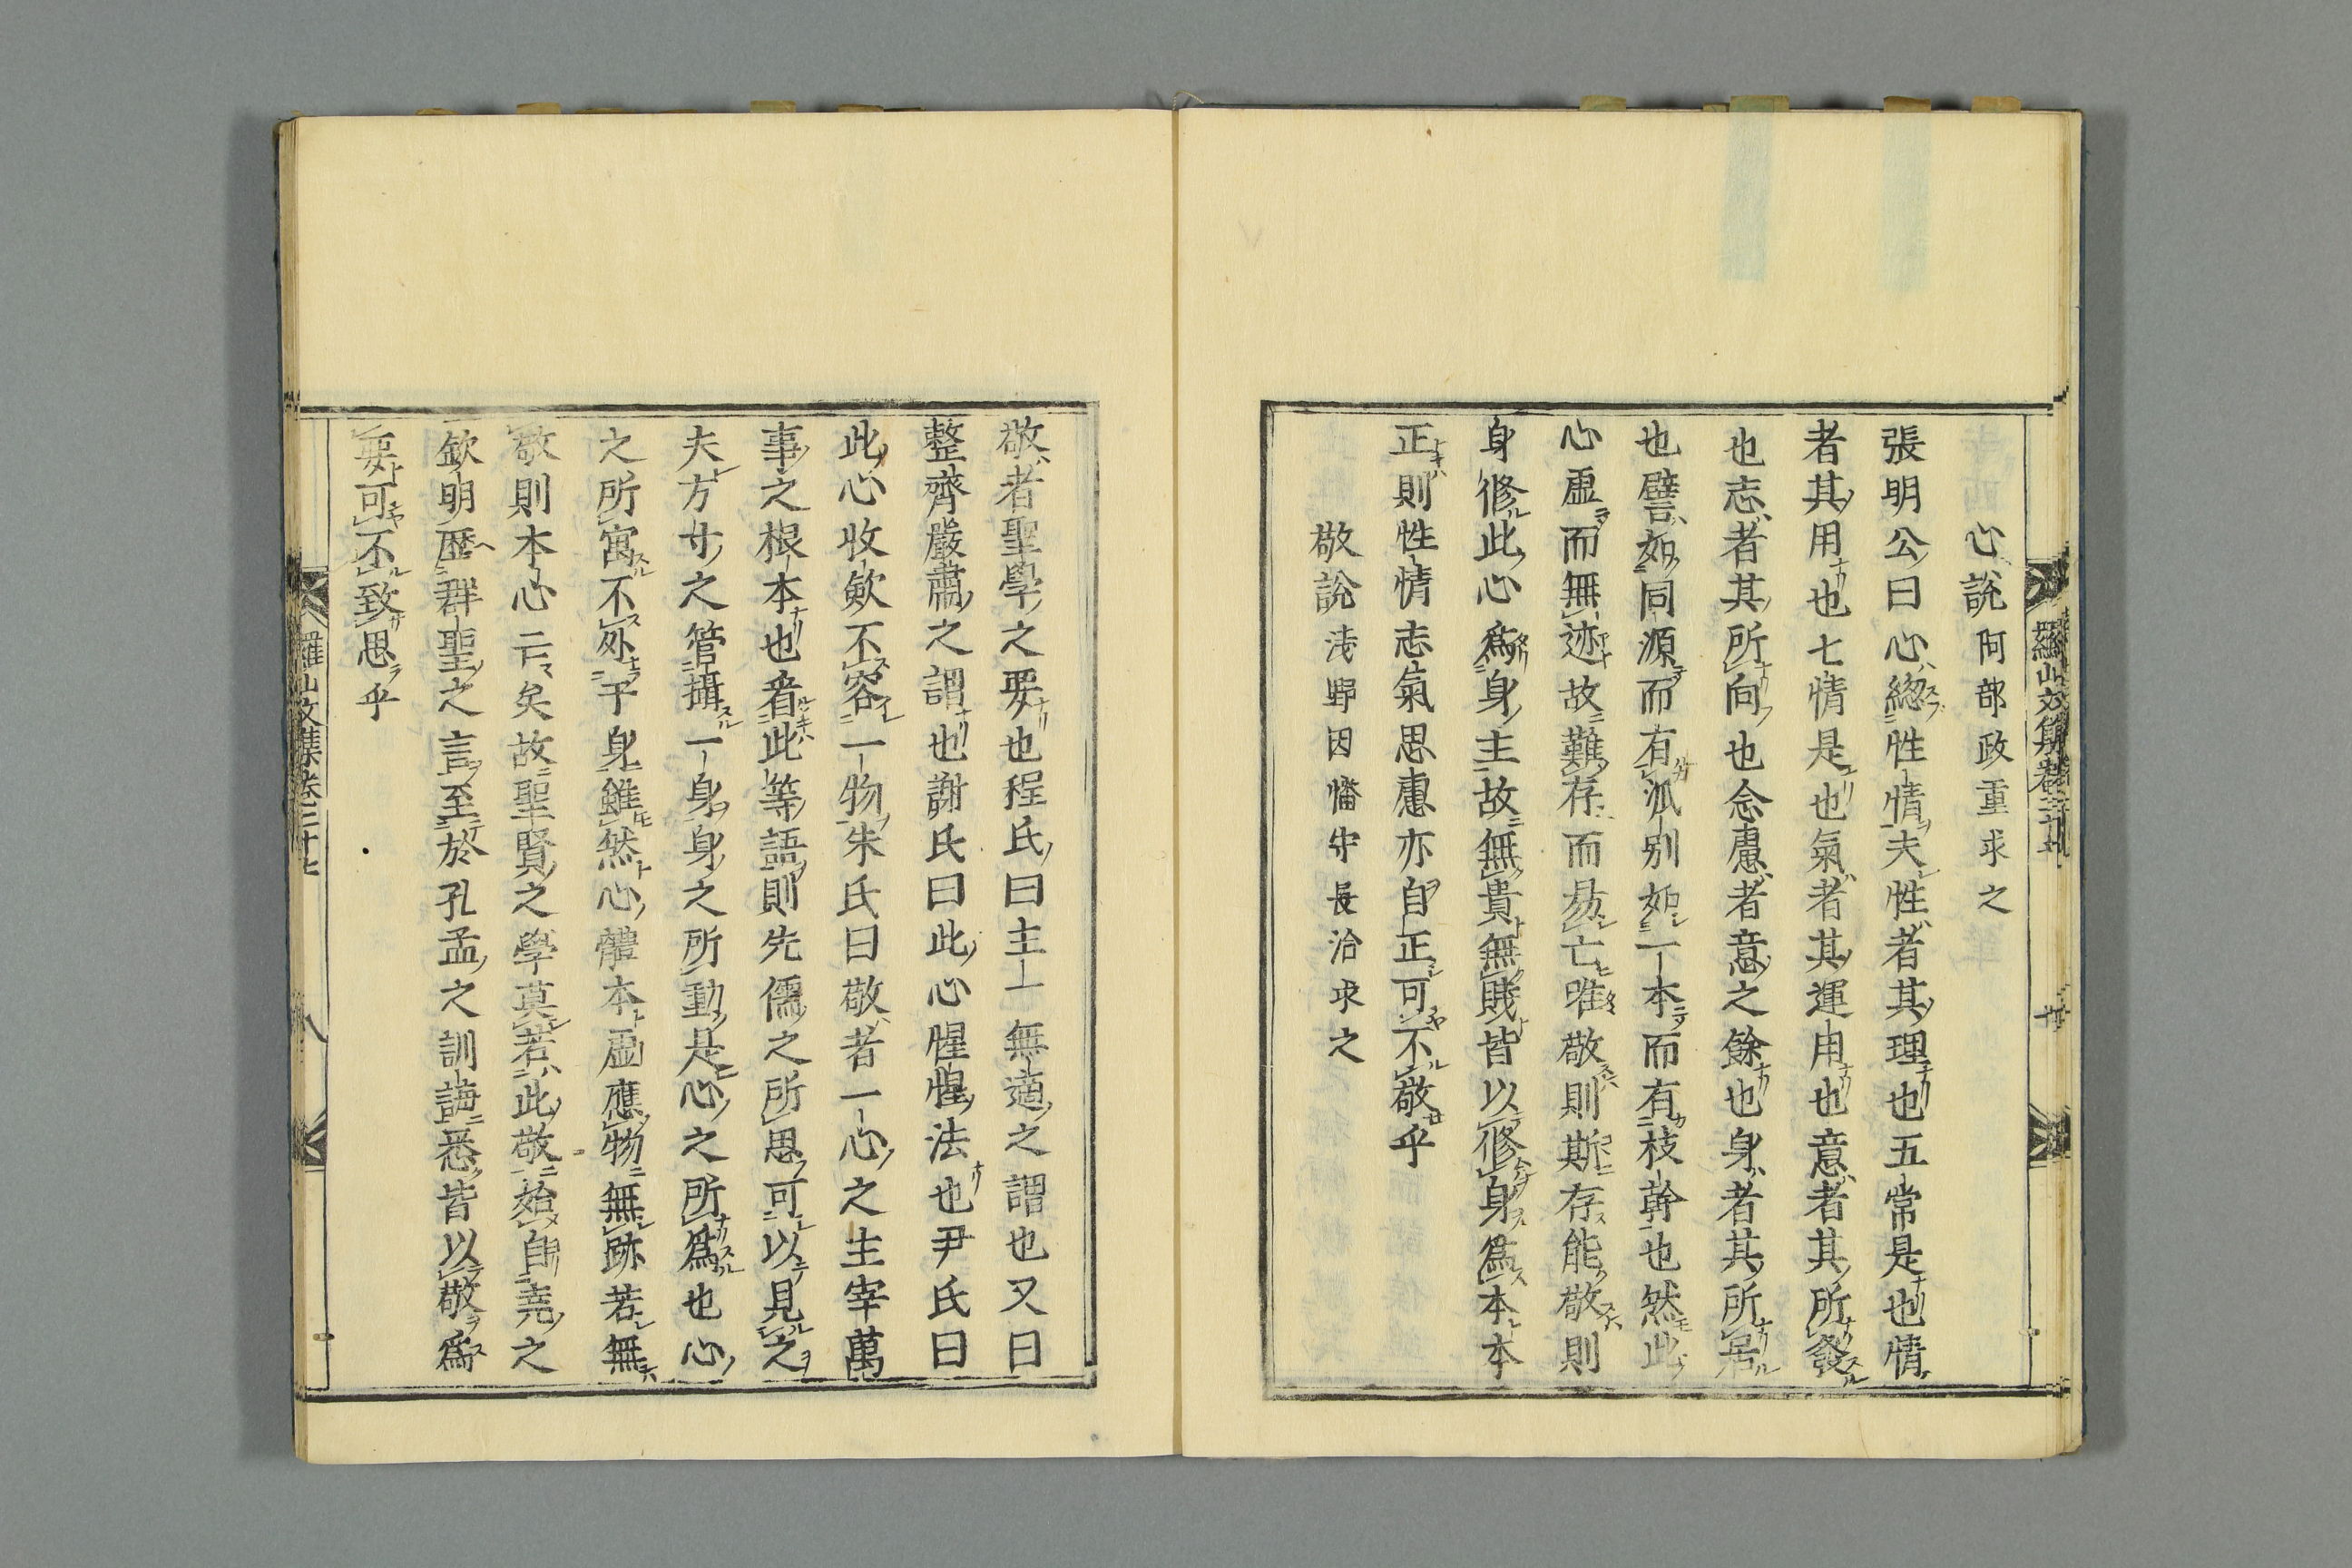 心說阿部政重求之
張明公曰心總性情夫性者其理也五常是也情
者其用也七情是也氣者其運用也意者其所發
也志者其所向也念慮者意之餘也身者其所居
也譬如同源而有派別如一本而有枝幹也然此
心虛而無迹故難存而易亡唯敬則斯存能敬則
身修此心為身主故無貴無賤皆以修身為本本
正則性情志氣思慮亦自正可不敬乎
敬說淺野因幡守長治求之
敬者聖學之要也程氏曰主一無適之謂也又曰
整齊嚴肅之謂也謝氏曰此心惺惺法也尹氏曰
此心收歛不容一物朱氏曰敬者一心之主宰萬
事之根本也看此等語則先儒之所思可以見之
夫方寸之管攝一身身之所動是心之所為也心
之所寓不外乎身雖然心體本虛應物無跡若無
敬則本心亡矣故聖賢之學莫若此敬始自堯之
欽明歷群聖之言至於孔孟之訓誨悉皆以敬為
要可不致思乎
羅山文集卷二十七
八